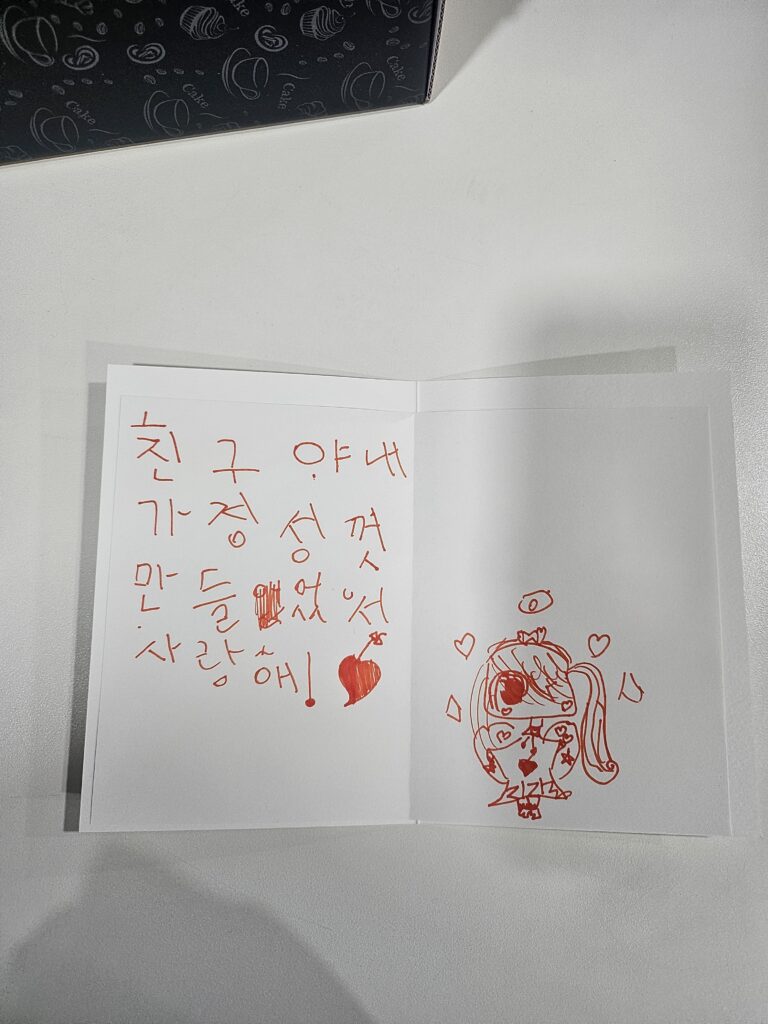 Cake
Cake
Cake
Cake
친구야내
가정성껏
만들었어
사랑해!